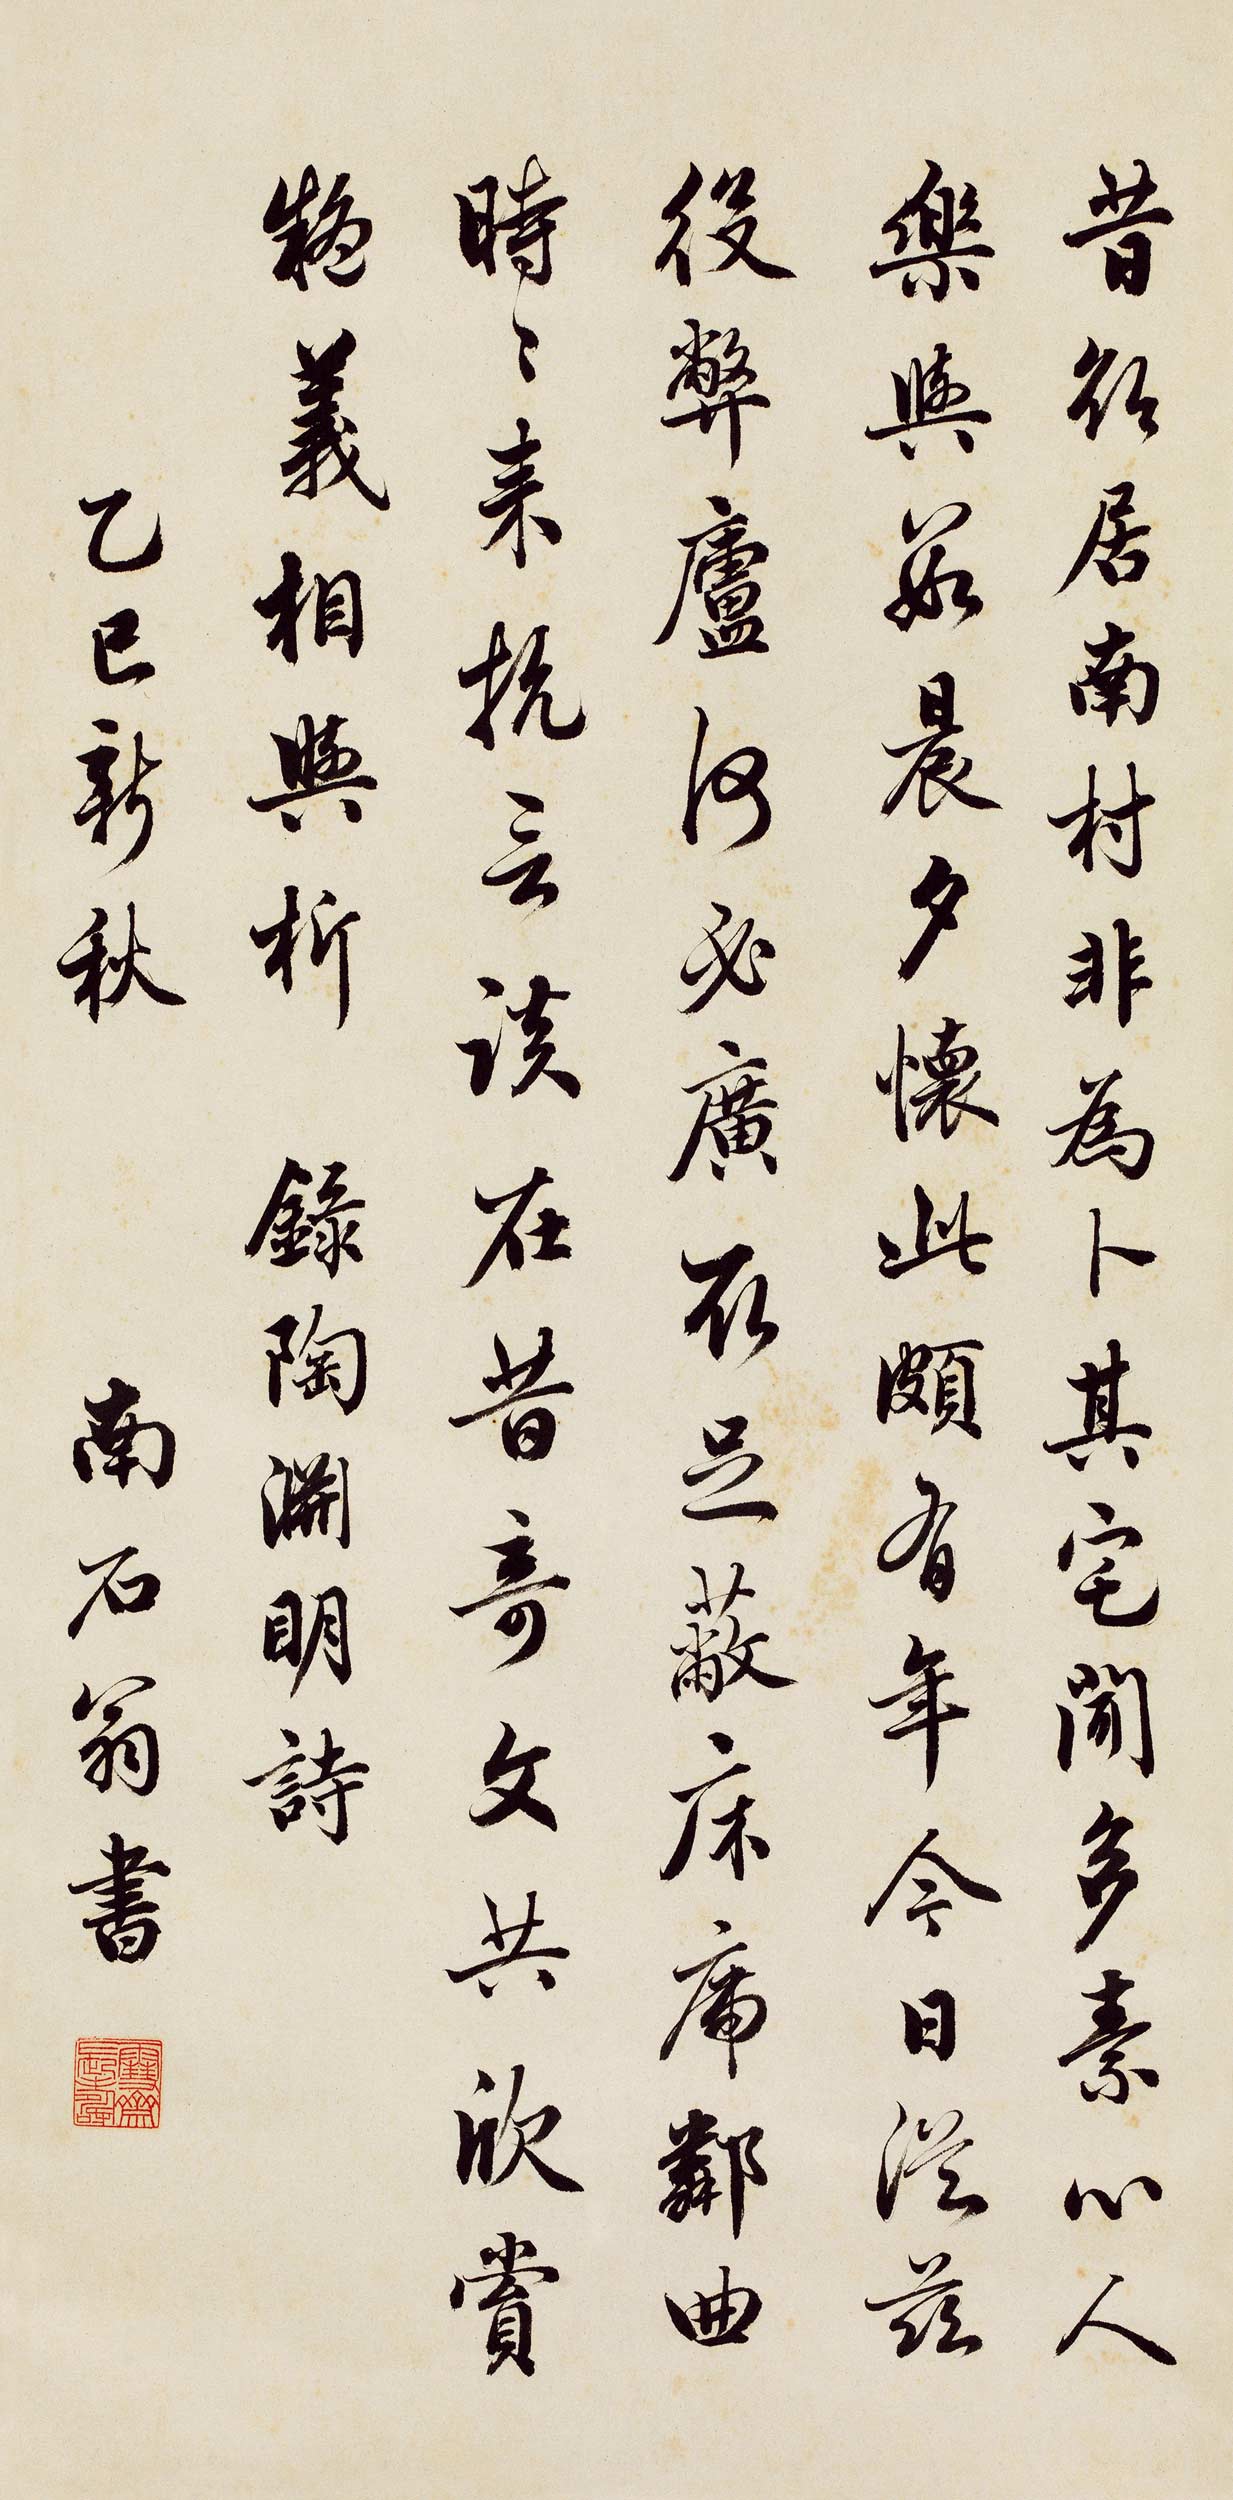 昔欲居南村非為卜其宅聞多素心人
樂與數晨夕懷此頗有年今日從茲
役弊廬何必廣取足蔽床席鄰曲
時〻來抗言談在昔奇文共欣賞
疑義相與析 錄陶淵明詩
乙巳新秋 南石翁書